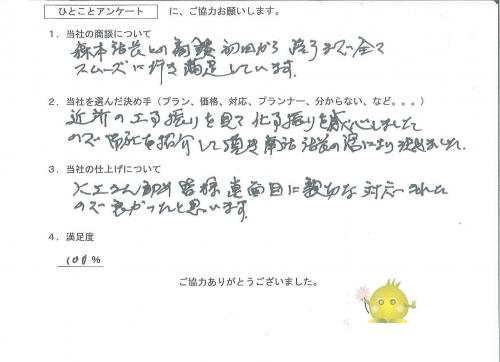 ひとことアンケート に、ご協力お願いします。
1．当社の商談について
森本店長との商談 初回から終了まで全て
スムーズに行き満足しています。
2．当社を選んだ決め手（プラン、価格、対応、プランナー、分からない、など。。。）
近所の工事振りを見て仕事振りを感心しました
ので 御社を紹介して頂き 店長の 決めました。
3．当社の仕上げについて
大工さん 皆様 真面目に親切な対応された
ので良かったと思います。
4．満足度
100％
ご協力ありがとうございました。